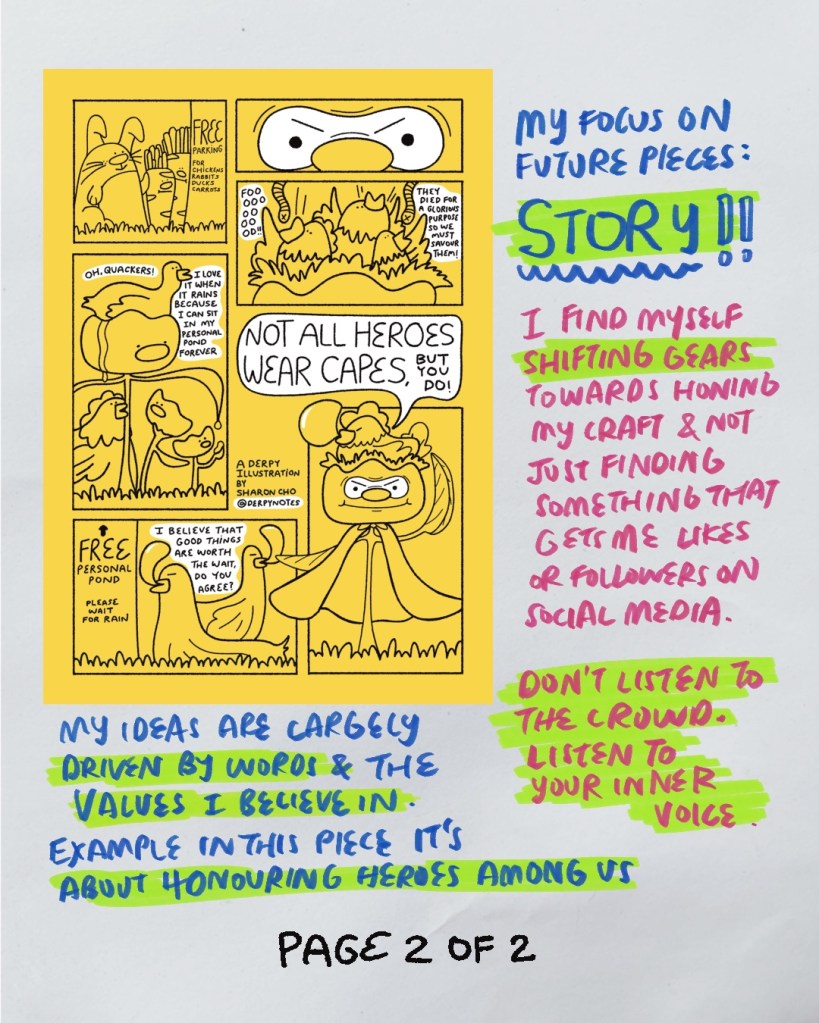 FREE
PARKING
FOR
CHICKENS
RABBITS
DUCKS
CARROTS
FOO
OOO
OO
OO
OD!!
THEY
DIED FOR
A GLORIOUS
PURPOSE
SO WE
MUST
SAVOUR
THEM!
OH, QUACKERS!
I LOVE
IT WHEN
IT RAINS
BECAUSE
I CAN SIT
IN MY
PERSONAL
POND
FOREVER
NOT ALL HEROES
WEAR CAPES,
BUT
YOU
DO!
A DERPY
ILLUSTRATION
BY
SHARON CHO
@DERPYNOTES
FREE
PERSONAL
POND
PLEASE
WAIT
FOR RAIN
I BELIEVE THAT
GOOD THINGS
ARE WORTH
THE WAIT,
DO YOU
AGREE?
MY FOCUS ON
FUTURE PIECES:
STORY!!
I FIND MYSELF
SHIFTING GEARS
TOWARDS HONING
MY CRAFT & NOT
JUST FINDING
SOMETHING THAT
GETS ME LIKES
OR FOLLOWERS ON
SOCIAL MEDIA.
DON'T LISTEN TO
THE CROWD.
LISTEN TO
YOUR INNER
VOICE.
MY IDEAS ARE LARGELY
DRIVEN BY WORDS & THE
VALUES I BELIEVE IN.
EXAMPLE IN THIS PIECE IT'S
ABOUT HONOURING HEROES AMONG US
PAGE 2 OF 2